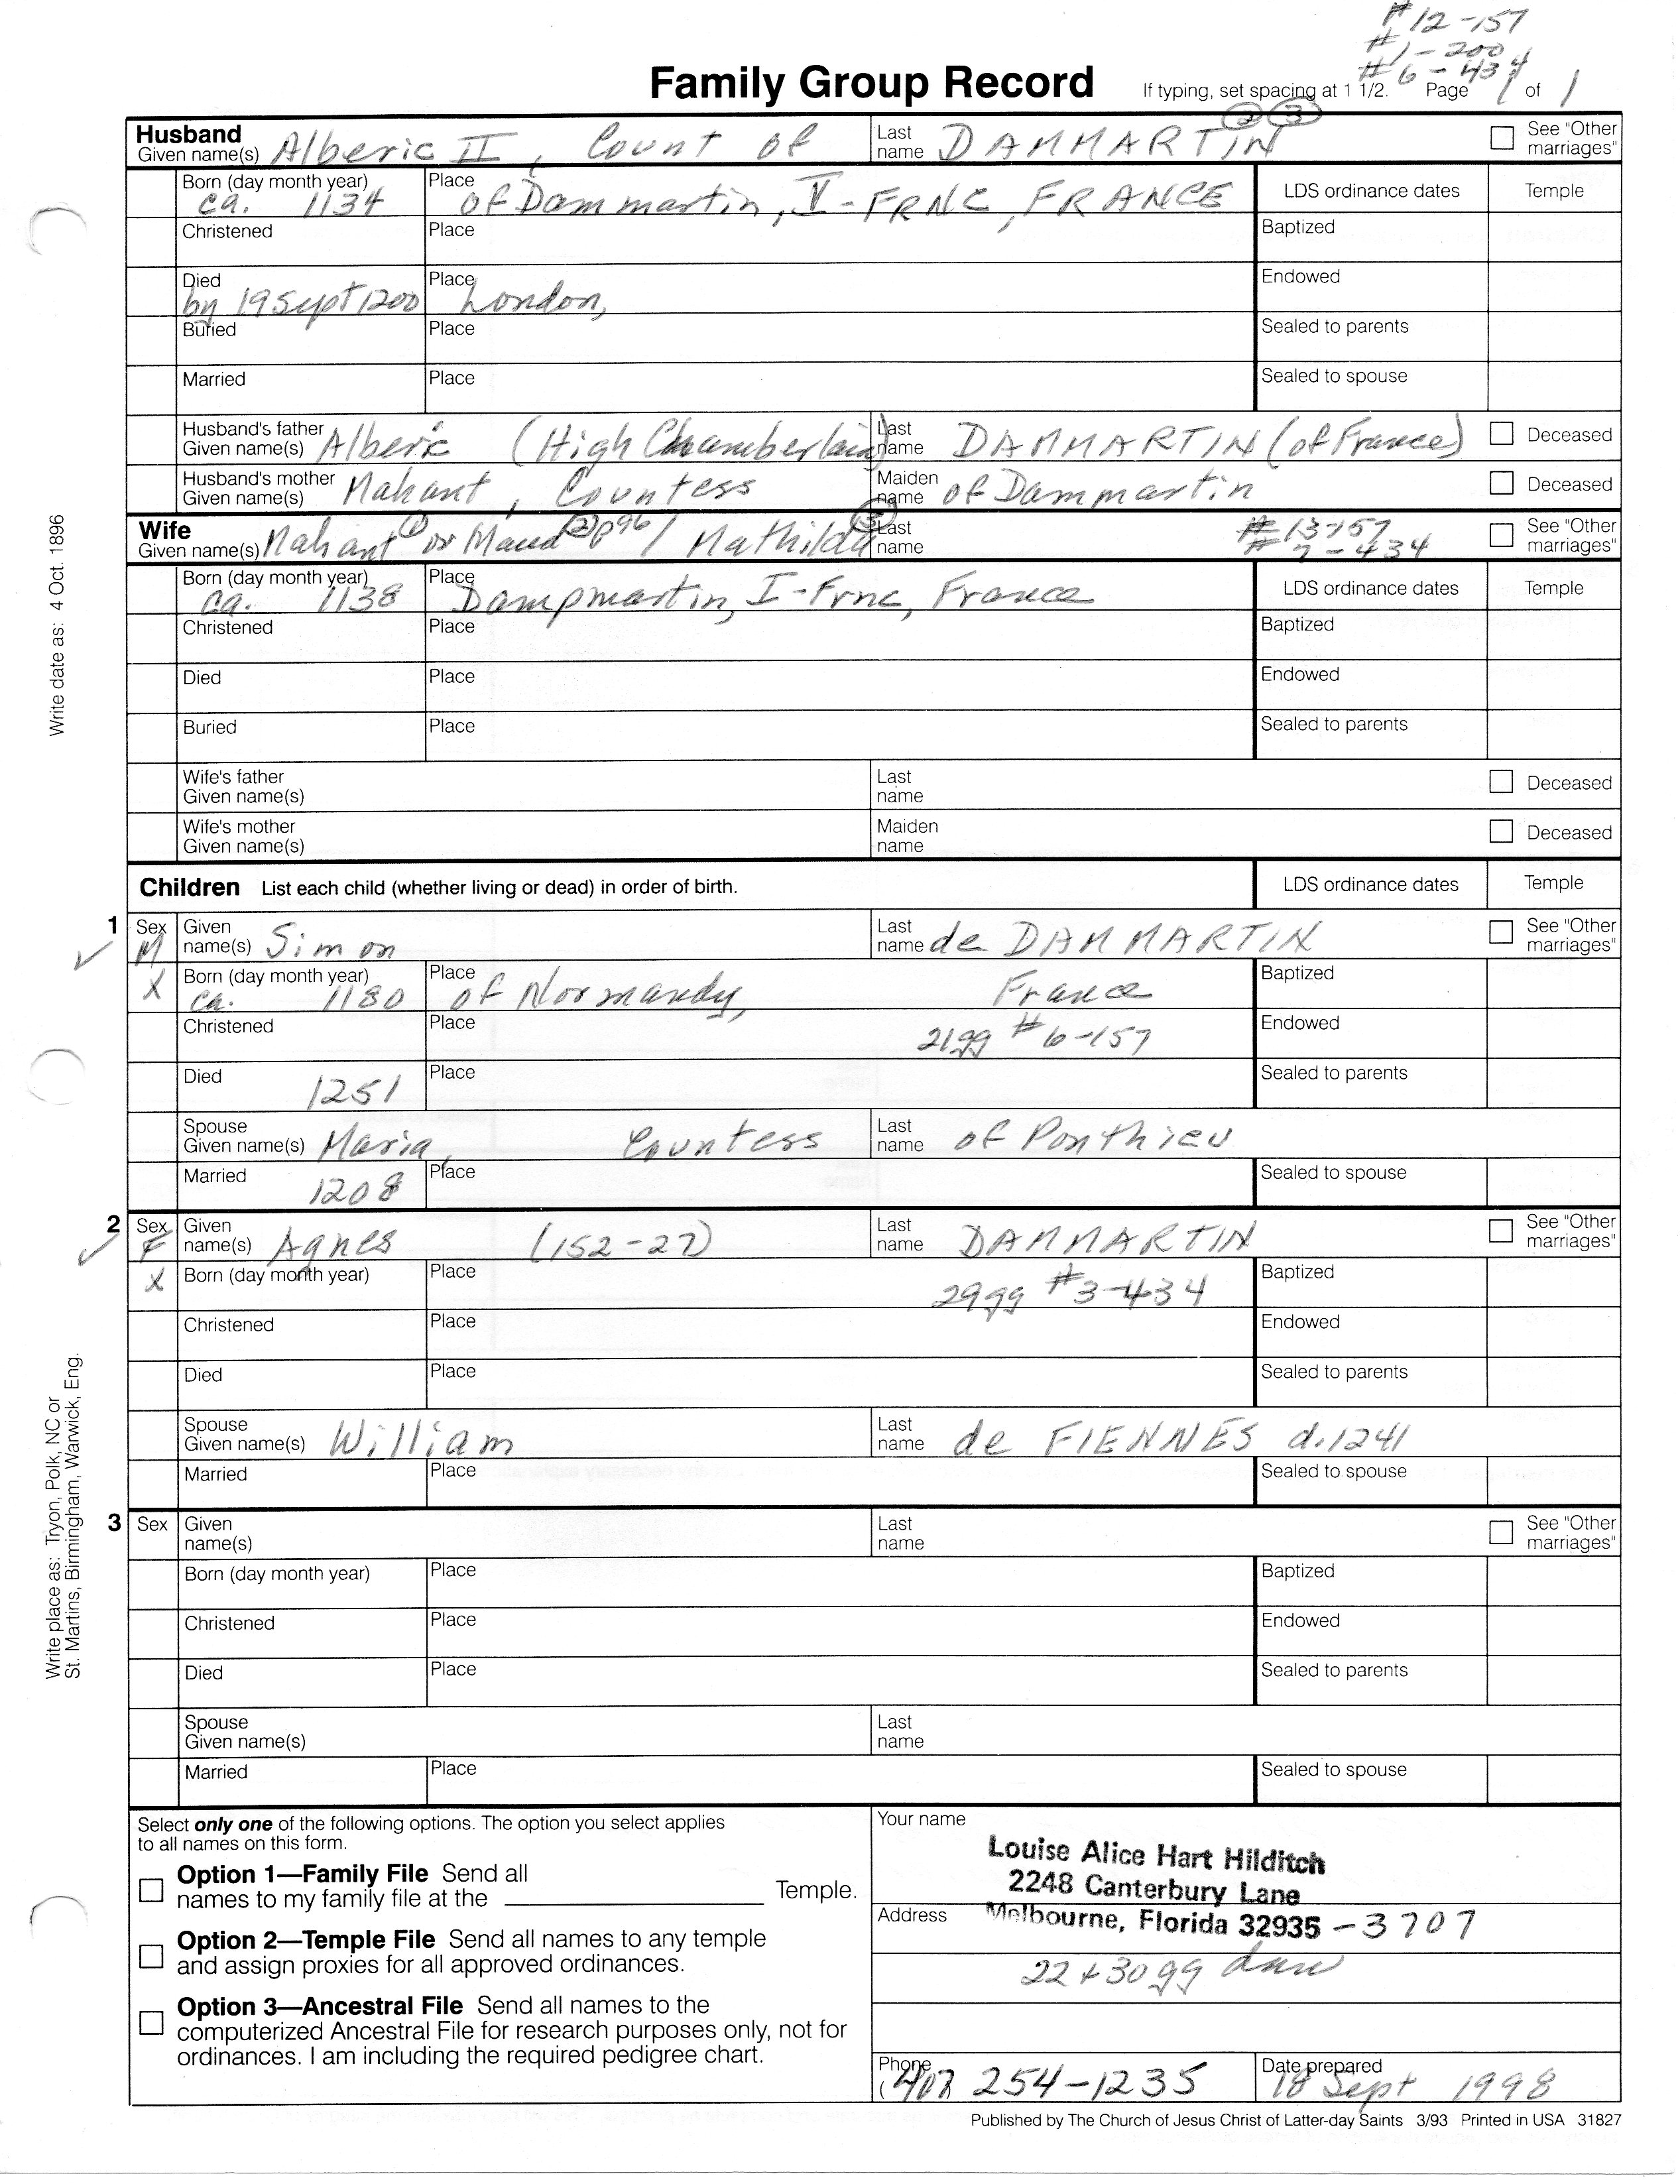 #12-157
#1-200
#6-434
Family Group Record If typing, set spacing at 1 1/2. Page 1 of 1
2 3
Husband
Given name(s) Alberic II, Count of Last name DAMMARTIN See "Other marriages"
Born (day month year) ca. 1134 Place of Dammartin, I-FRNC, FRANCE LDS ordinance dates Temple
Christened Place Baptized
Died by 19 Sept 1200 Place London, Endowed
Buried Place Sealed to parents
Married Place Sealed to spouse
Husband's father Given name(s) Alberic (High Chamberlain) Last name DAMMARTIN (of France) Deceased
Husband's mother Given name(s) Mahant, Countess Maiden name of Dammartin Deceased
Wife
Given name(s) Mahant (1) or Maud (2) p96 / Mathilda (3) Last name #13-157 #7-434 See "Other marriages"
Born (day month year) ca. 1138 Place Dampmartin, I-Frnc, France LDS ordinance dates Temple
Christened Place Baptized
Died Place Endowed
Buried Place Sealed to parents
Wife's father Given name(s) Last name Deceased
Wife's mother Given name(s) Maiden name Deceased
Children List each child (whether living or dead) in order of birth. LDS ordinance dates Temple
1 Sex M Given name(s) Simon Last name de DAMMARTIN See "Other marriages"
X Born (day month year) ca. 1180 Place of Normandy, France Baptized
Christened Place 21gg #6-157 Endowed
Died 1251 Place Sealed to parents
Spouse Given name(s) Maria, Countess Last name of Ponthieu
Married 1208 Place Sealed to spouse
2 Sex F Given name(s) Agnes (152-27) Last name DAMMARTIN See "Other marriages"
X Born (day month year) Place 29gg #3-434 Baptized
Christened Place Endowed
Died Place Sealed to parents
Spouse Given name(s) William Last name de FIENNES d.1241
Married Place Sealed to spouse
3 Sex Given name(s) Last name See "Other marriages"
Born (day month year) Place Baptized
Christened Place Endowed
Died Place Sealed to parents
Spouse Given name(s) Last name
Married Place Sealed to spouse
Select only one of the following options. The option you select applies
to all names on this form.
Option 1—Family File Send all
names to my family file at the Temple.
Option 2—Temple File Send all names to any temple
and assign proxies for all approved ordinances.
Option 3—Ancestral File Send all names to the
computerized Ancestral File for research purposes only, not for
ordinances. I am including the required pedigree chart.
Your name
Louise Alice Hart Hilditch
2248 Canterbury Lane
Address Melbourne, Florida 32935-3707
22+30gg
Phone (407 254-1235 Date prepared 18 Sept 1998
Published by The Church of Jesus Christ of Latter-day Saints 3/93 Printed in USA 31827
Write date as: 4 Oct. 1896
Write place as: Tryon, Polk, NC or
St. Martins, Birmingham, Warwick, Eng.